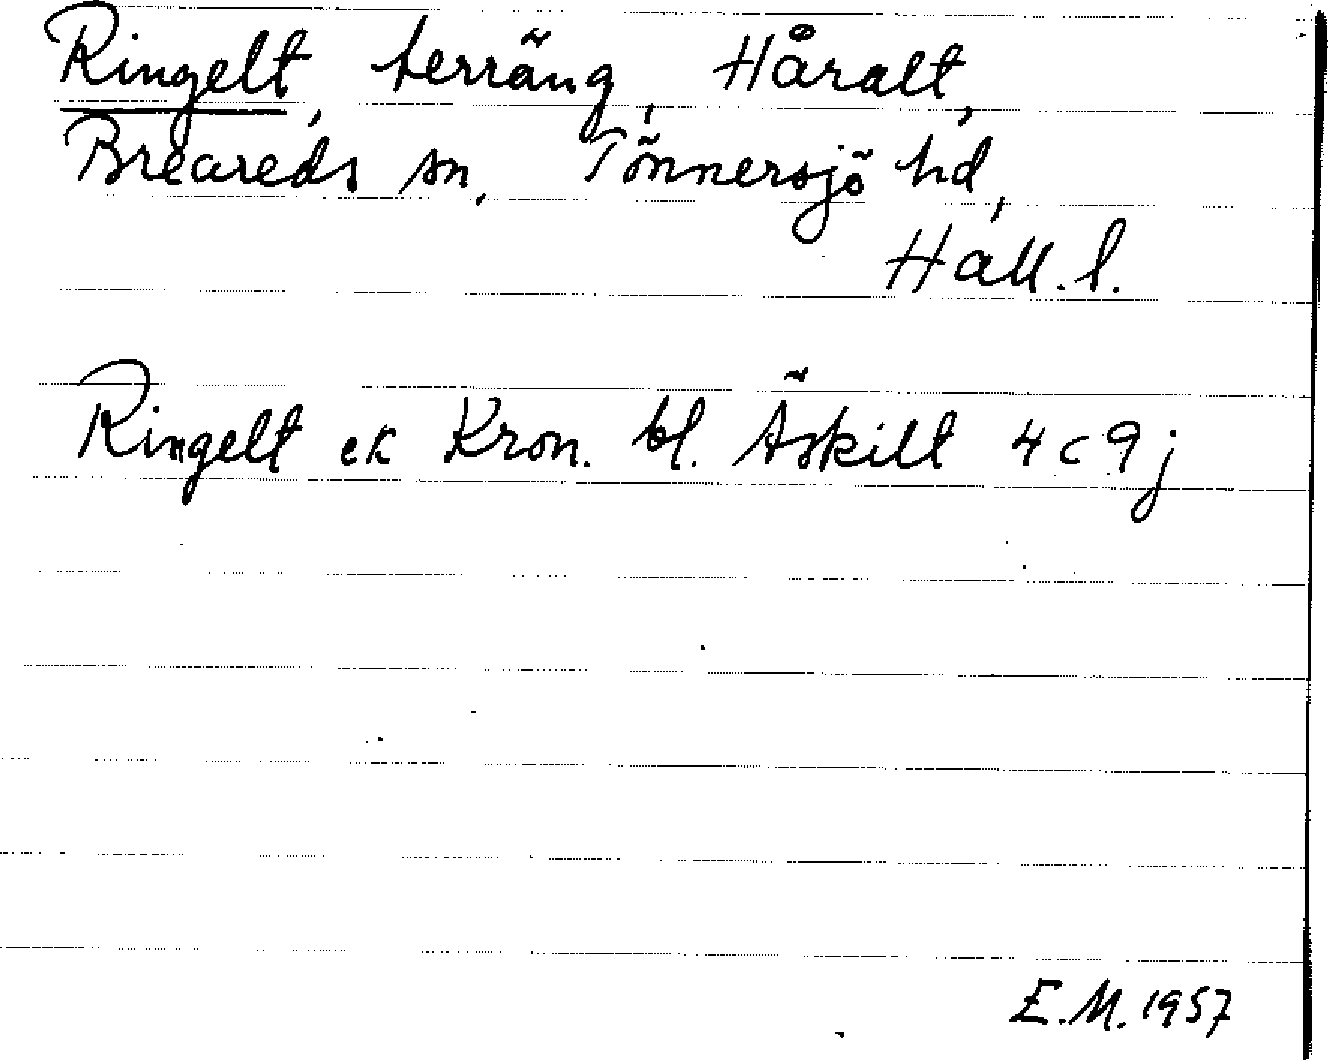 Ringelt, terräng, Håralt,
Breareds sn, Tönnersjö hd,
Hall.l.
Ringelt ek Kron. bl. Äskilt 4c9j
E.M. 1957